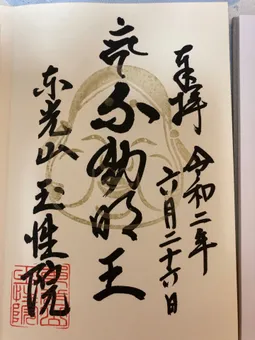 奉拝
令和二年
六月二十六日
不動明王
東光山 玉性院